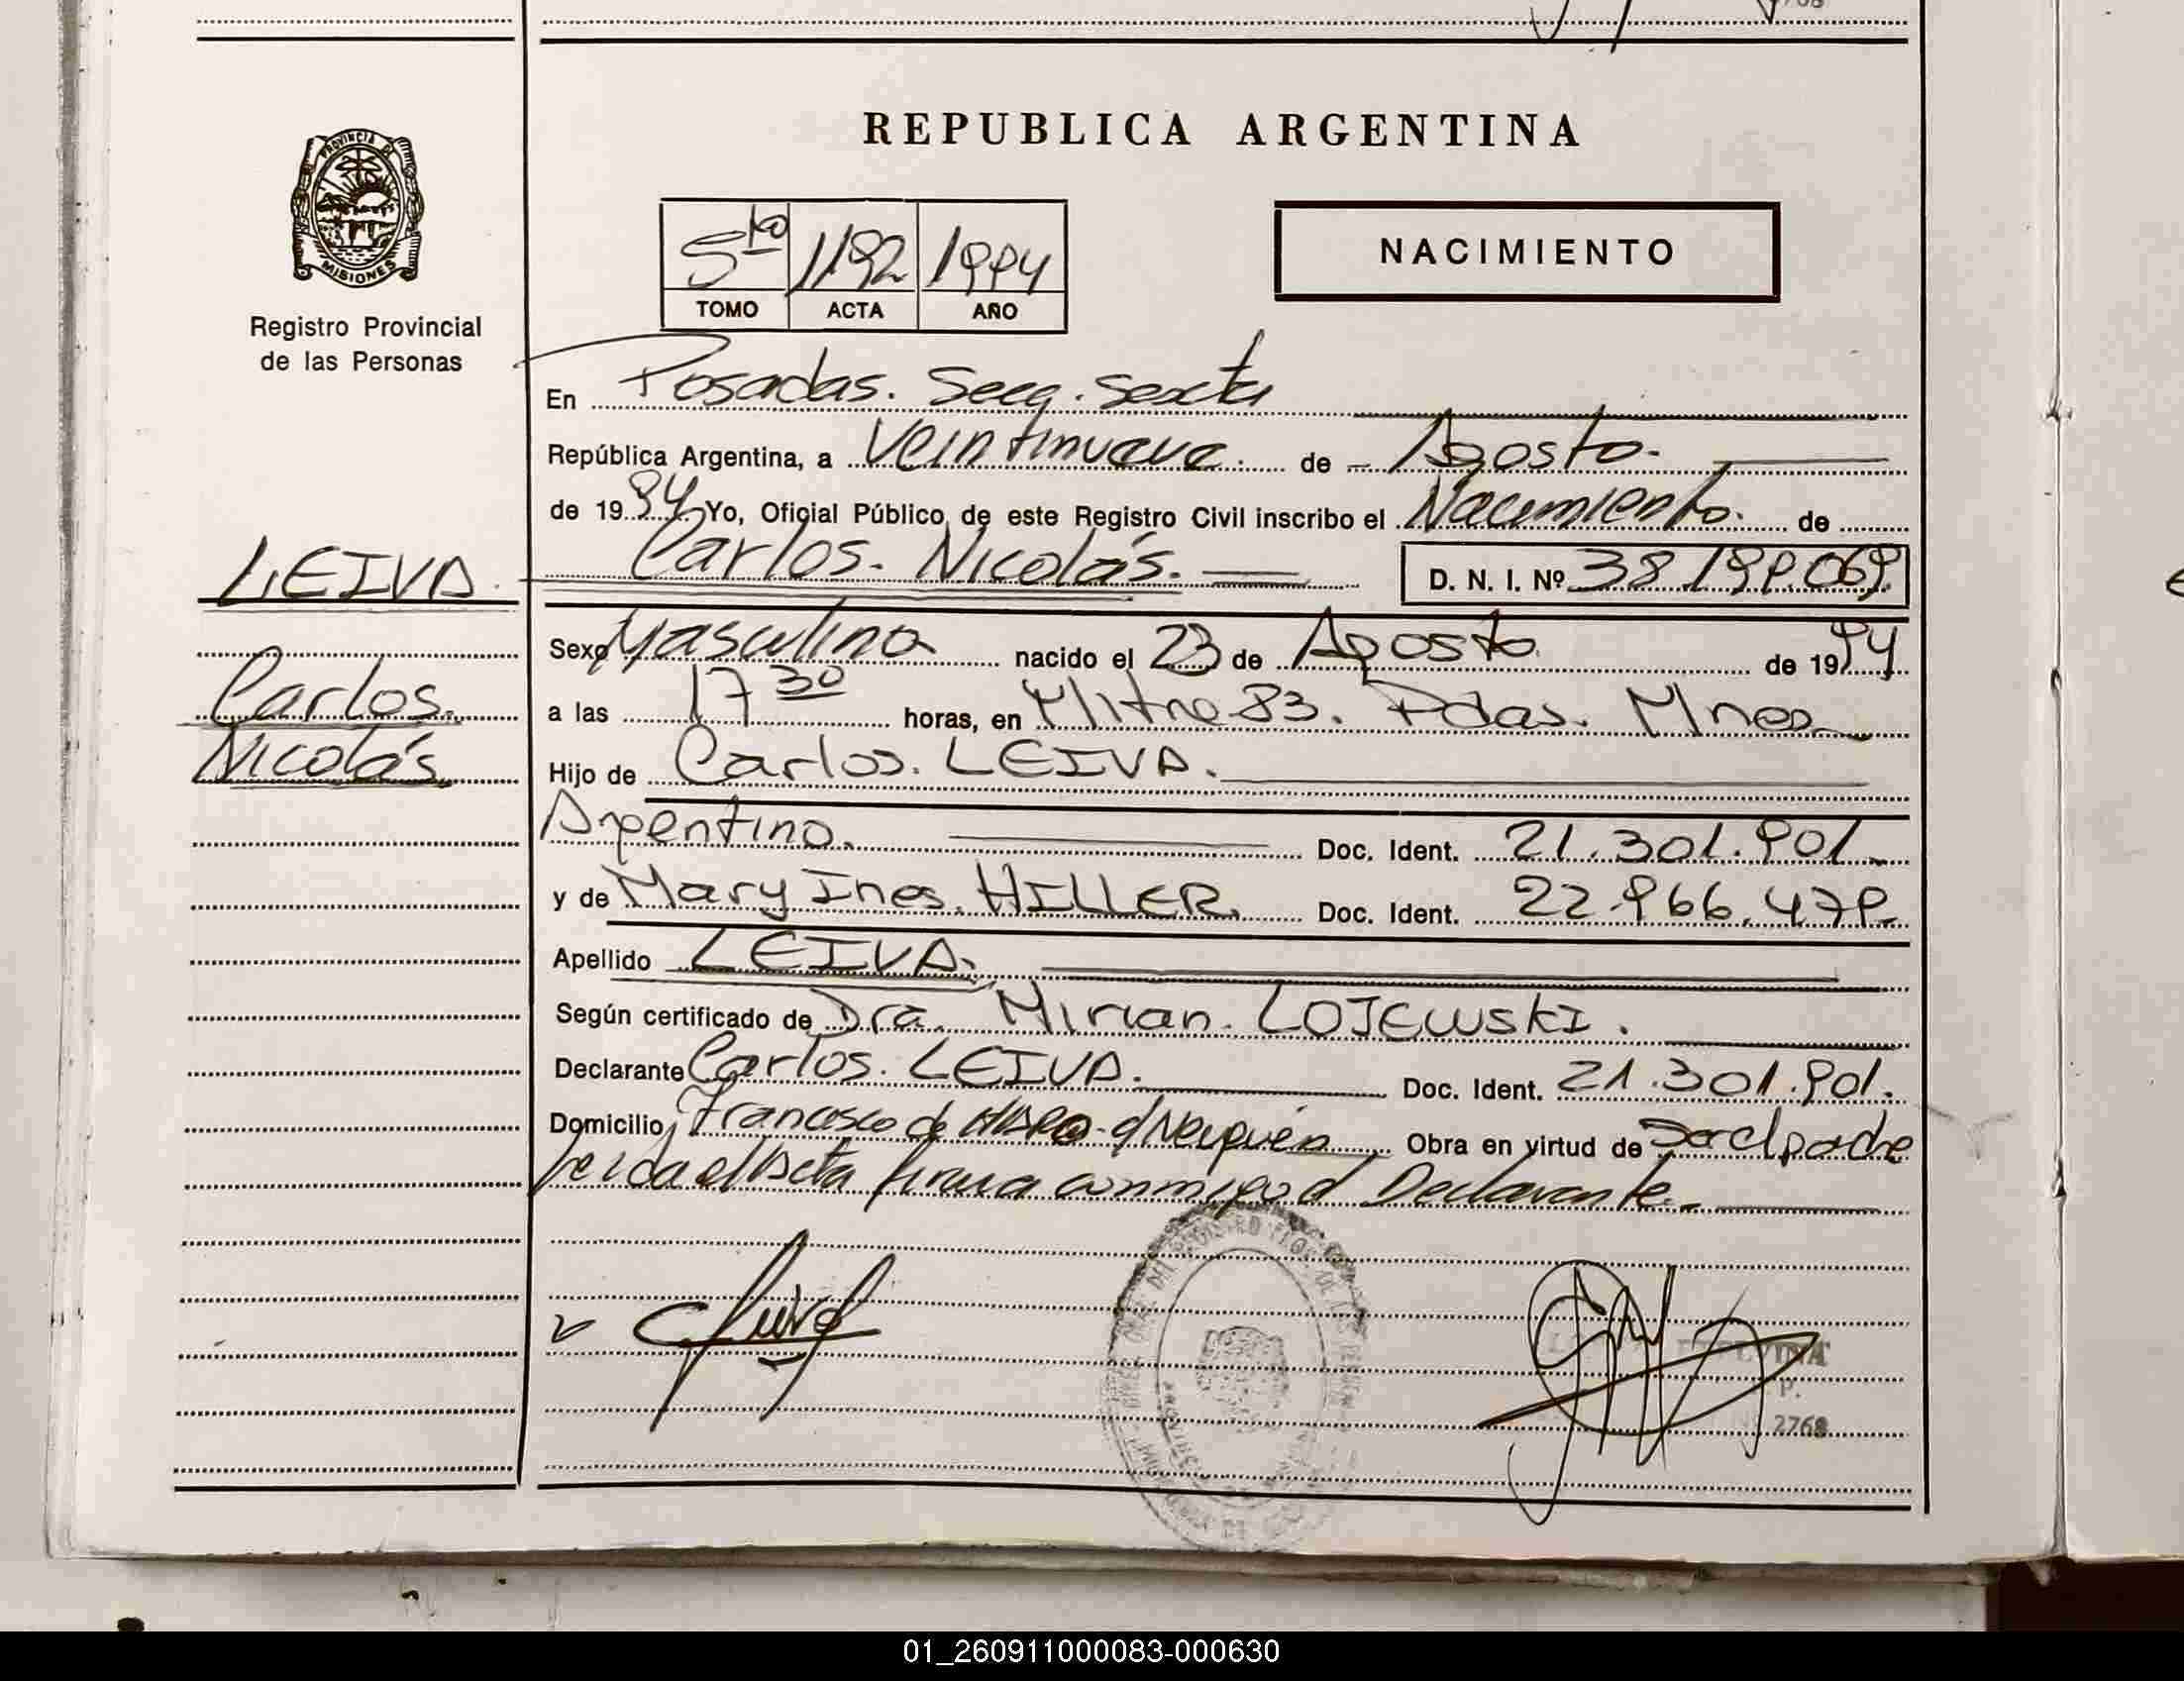 REPUBLICA ARGENTINA
PROVINCIA DE
MISIONES
Registro Provincial
de las Personas
5to 1192 1994
TOMO ACTA AÑO
NACIMIENTO
En Posadas. Secc. Sexta
República Argentina, a Veintinueve. de Agosto.
de 1994 Yo, Oficial Público de este Registro Civil inscribo el Nacimiento. de
Carlos. Nicolás. D. N. I. Nº 38.199.069.
LEIVA.
Carlos.
Nicolás.
Sexo Masculino nacido el 23 de Agosto de 1994
a las 17 30 horas, en Mitre 83. Pdas. Mnes
Hijo de Carlos. LEIVA.
Argentino. Doc. Ident. 21.301.901.
y de Mary Ines. HILLER. Doc. Ident. 22.966.479.
Apellido LEIVA.
Según certificado de Dra. Mirian. LOJEWSKI.
Declarante Carlos. LEIVA. Doc. Ident. 21.301.901.
Domicilio Francisco de Haro. Neuquén Obra en virtud de Ser el padre
Leida el Acta firma conmigo el Declarante.
2768
01_260911000083-000630